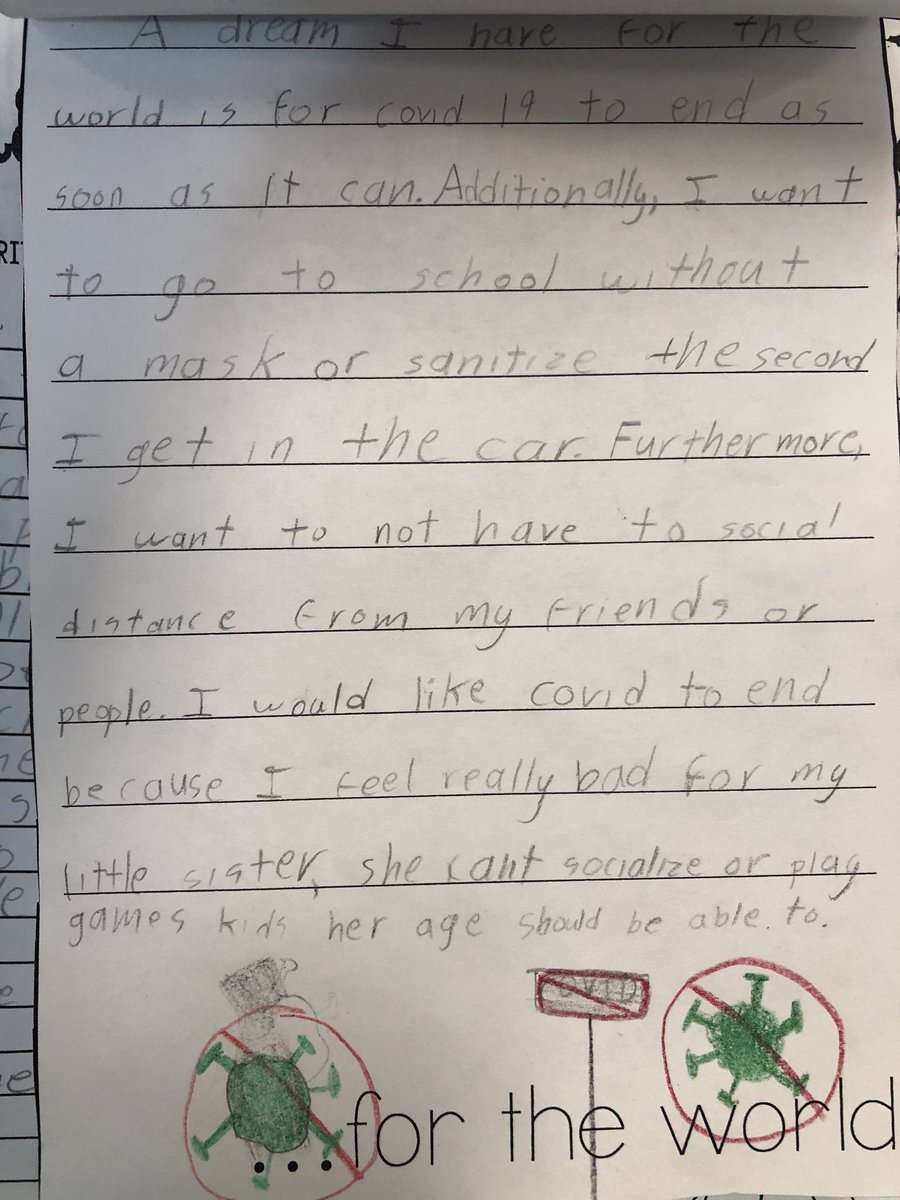 A dream I have for the
world is for covid 19 to end as
soon as it can. Additionally, I want
to go to school without
a mask or sanitize the second
I get in the car. Furthermore,
I want to not have to social
distance from my friends or
people. I would like covid to end
because I feel really bad for my
little sister, she cant socialize or play
games kids her age should be able to.
COVID
...for the world